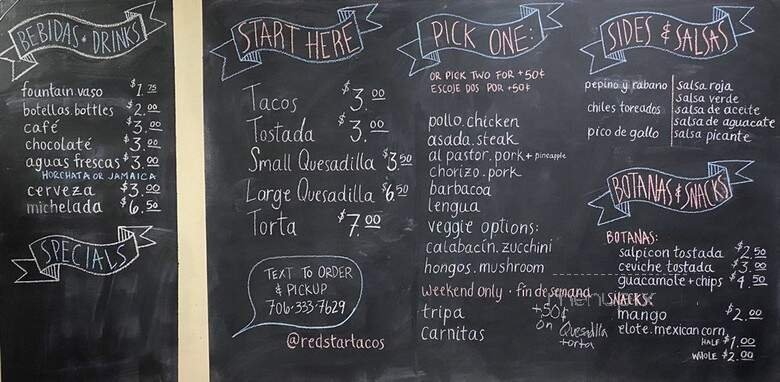 BEBIDAS • DRINKS
fountain.vaso $1.75
botellas.bottles $2.00
café $3.00
chocolaté $3.00
aguas frescas $3.00
HORCHATA OR JAMAICA
cerveza $3.00
michelada $6.50
SPECIALS
START HERE
Tacos $3.00
Tostada $3.00
Small Quesadilla $3.50
Large Quesadilla $6.50
Torta $7.00
TEXT TO ORDER
& PICKUP
706·333·7629
@redstartacos
PICK ONE:
OR PICK TWO FOR +50¢
ESCOJE DOS POR +50¢
pollo.chicken
asada.steak
al pastor.pork + pineapple
chorizo.pork
barbacoa
lengua
veggie options:
calabacín.zucchini
hongos.mushroom
weekend only · fin de semana
tripa
carnitas
+50¢
on Quesadilla
torta
SIDES & SALSAS
pepino y rabano
chiles toreados
pico de gallo
salsa roja
salsa verde
salsa de aceite
salsa de aguacate
salsa picante
BOTANAS & SNACKS
BOTANAS:
salpicon tostada $2.50
ceviche tostada $3.00
guacamole + chips $4.50
SNACKS:
mango $2.00
elote.mexican corn
HALF $1.00
WHOLE $2.00